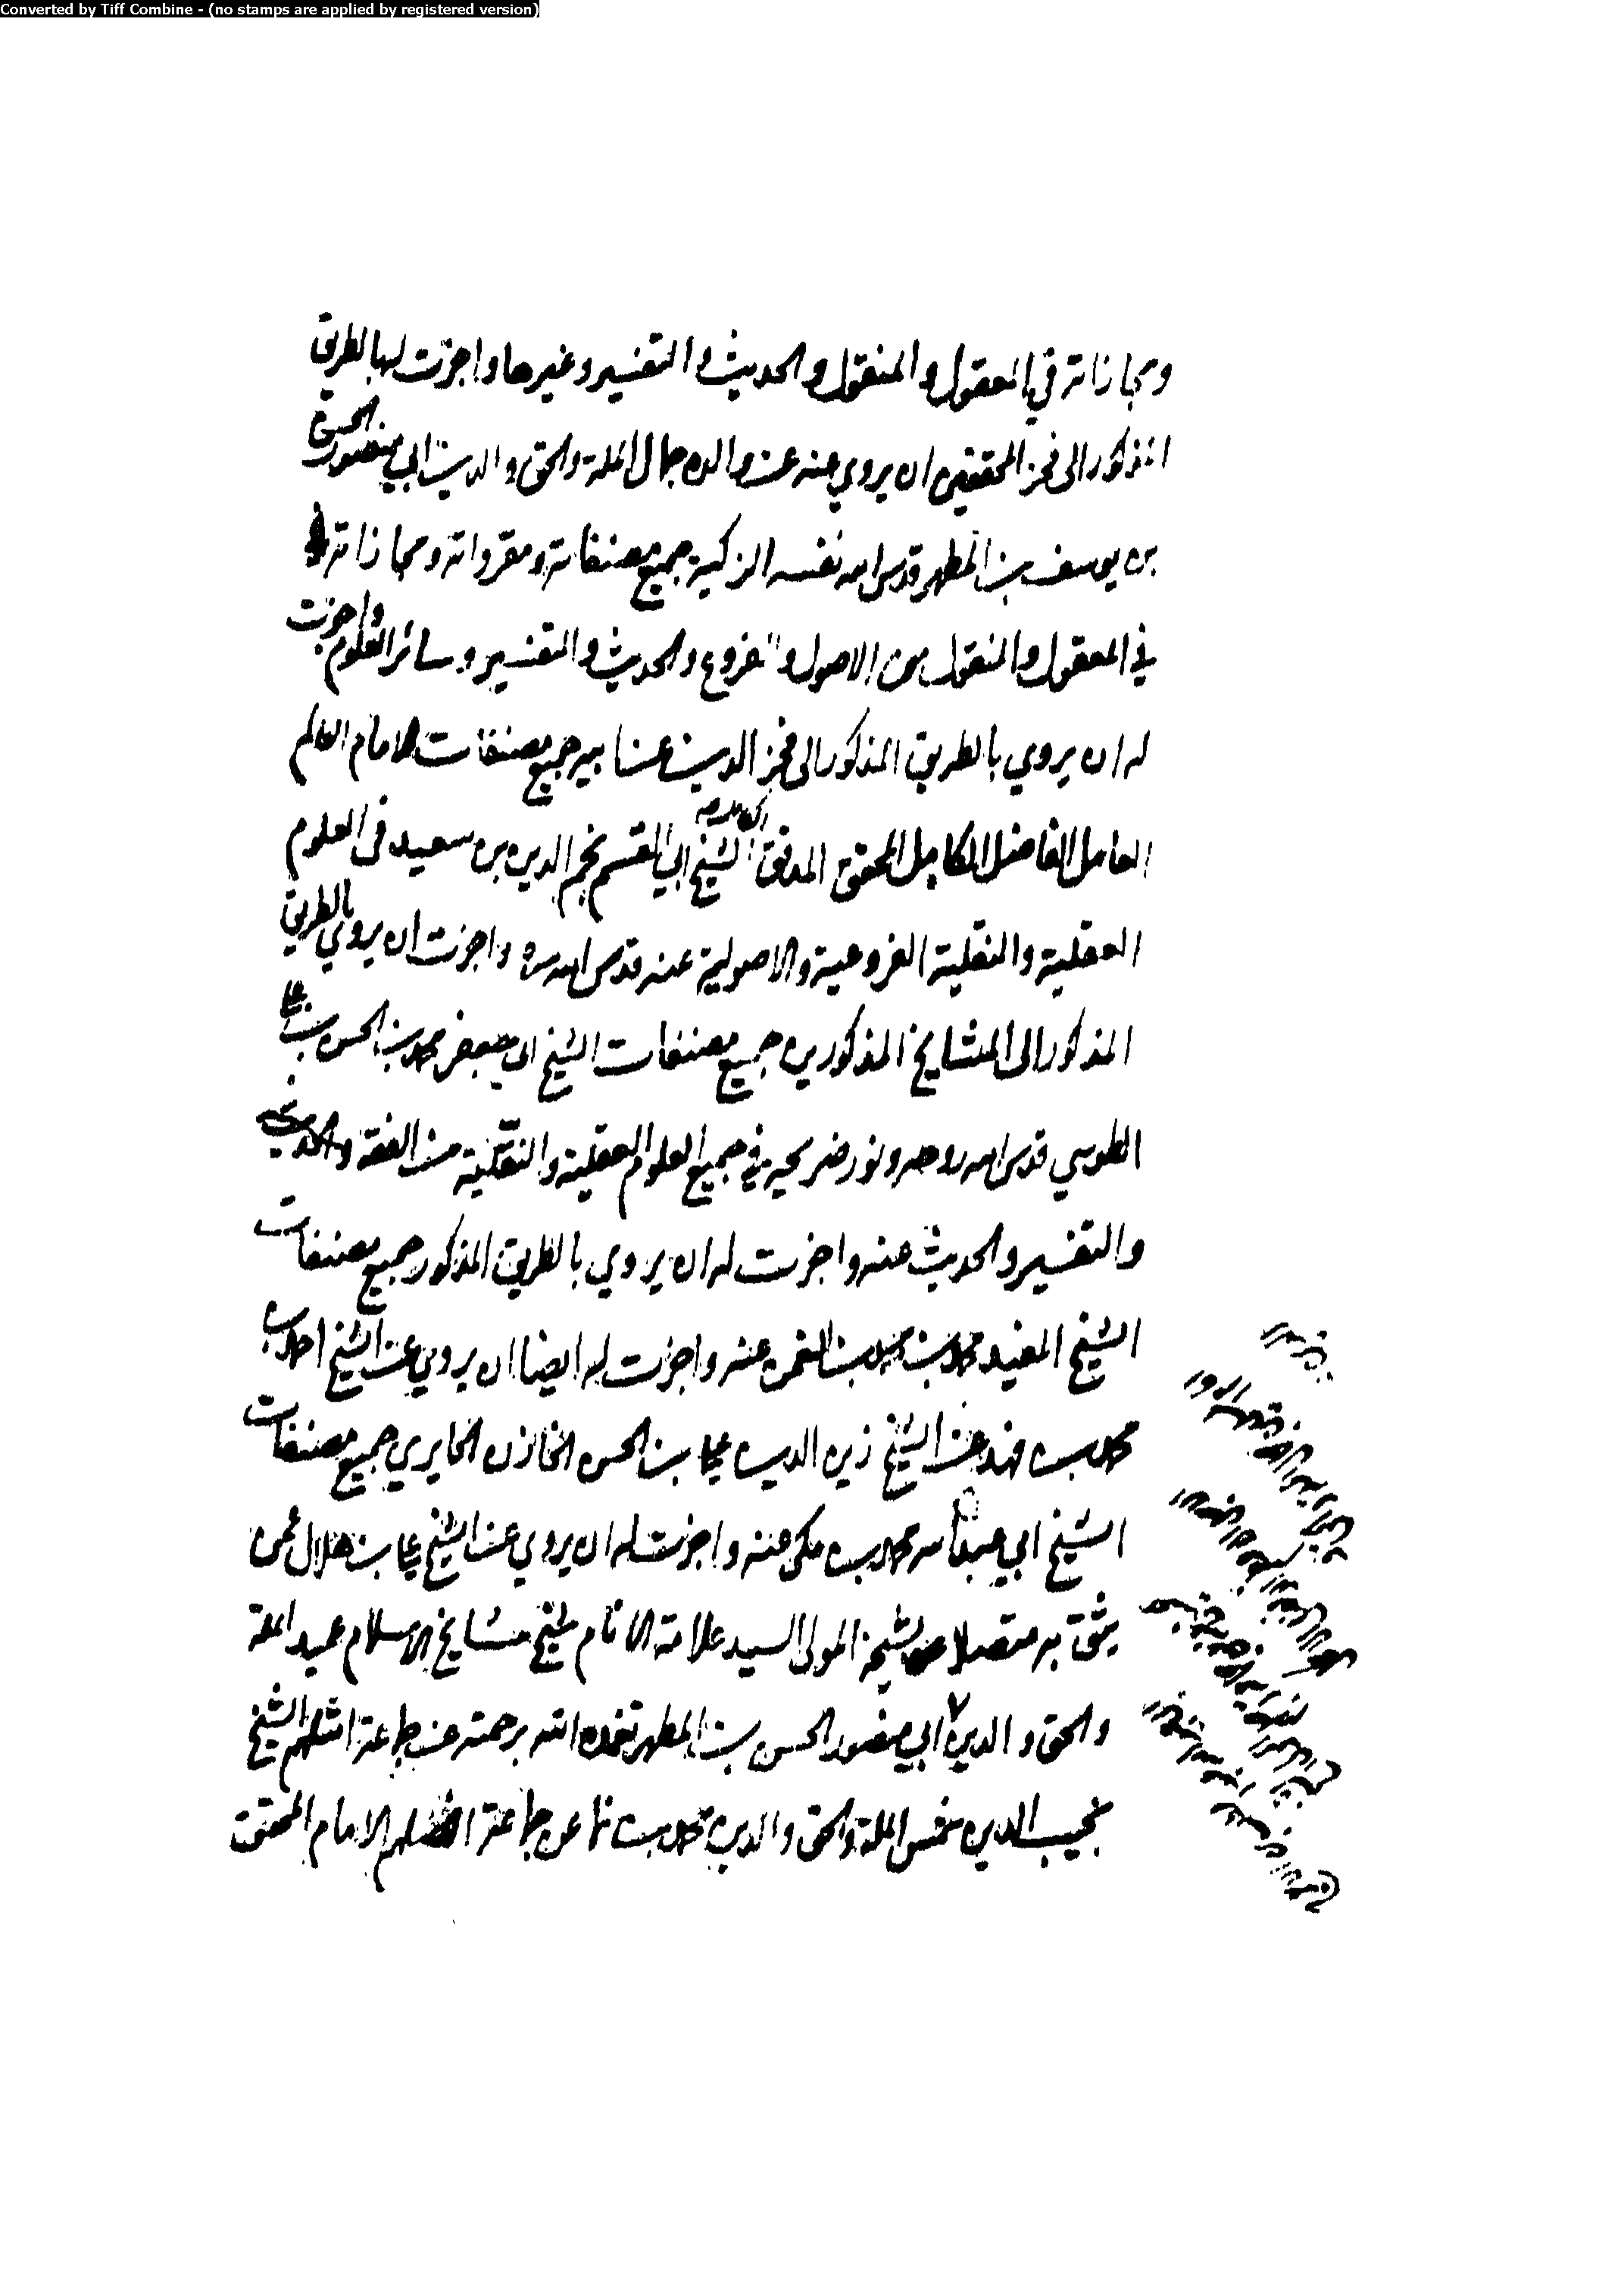 Converted by Tiff Combine - (no stamps are applied by registered version)
ومجازاته في المعقول والمنقول والحديث والتفسير وغيرها واجزت لها بالطريق
المذكور الى فخر المحققين ان يروي عنه عن والده جمال الملة والحق والدين ابي منصور الحسن
بن يوسف بن المطهر قدس الله نفسه الزكية جميع مصنفاته ومقرواته ومجازاته
في المعقول والمنقول من الاصول والفروع والحديث والتفسير وسائر العلوم واجزت
له ان يروي بالطريق المذكور الى فخر الدين عن ابيه جميع مصنفات الامام العالم
العامل الفاضل الكامل المحقق المدقق الشيخ ابي القسم نجم الدين بن سعيد في العلوم
العقلية والنقلية الفروعية والاصولية عنه قدس الله سره واجزت ان يروي بالطريق
المذكور الى المشايخ المذكورين جميع مصنفات الشيخ ابي جعفر محمد بن الحسن بن علي
الطوسي قدس الله روحه ونور ضريحه في جميع العلوم العقلية والنقلية من الفقه والحديث
والتفسير والحديث عنه واجزت له ان يروي بالطريق المذكور جميع مصنفات
الشيخ المفيد محمد بن محمد بن النعمن عنه واجزت له ايضا ان يروي عن الشيخ احمد بن
محمد بن فهد عن الشيخ زين الدين علي بن الحسن الخازن الحايري جميع مصنفات
الشيخ ابي عبد الله محمد بن مكي عنه واجزت له ان يروي عن الشيخ علي بن هلال عمن
يثق به متصلا الشيخ المولى السيد علامة الانام شيخ مشايخ الاسلام عميد الملة
والحق والدين ابي منصور الحسن بن المطهر تغمده الله برحمته عن جماعة امثلهم الشيخ
نجيب الدين شمس الملة والحق والدين محمد بن نما عن جماعة افضلهم الامام المحقق